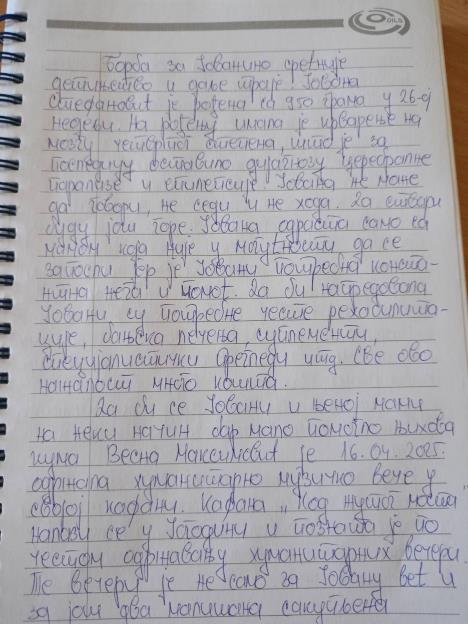 OILS
Борба за Јованино срећније
детињство и даље траје. Јована
Стефановић је рођена са 950 грама у 26-ој
недељи. На рођењу имала је крварење на
мозгу четвртог степена, што је за
последицу оставило дијагнозу церебралне
парализе и епилепсије. Јована не може
да говори, не седи и не хода. Да ствари
буду још горе, Јована одраста само са
мамом која није у могућности да се
запосли јер је Јовани потребна конста-
нтна нега и помоћ. Да би напредовала
Јовани су потребне честе рехабилита-
ције, бањска лечења, суплементи,
специјалистички прегледи итд. Све ово
нажалост много кошта.
Да би се Јовани и њеној мами
на неки начин бар мало помогло њихова
кума Весна Максимовић је 16.04.2025.
одржала хуманитарно музичко вече у
својој кафани. Кафана „Код жутог моста"
налази се у Јагодини и позната је по
честом одржавању хуманитарних вечери.
Те вечери је не само за Јовану већ и
за још два малишана сакупљена